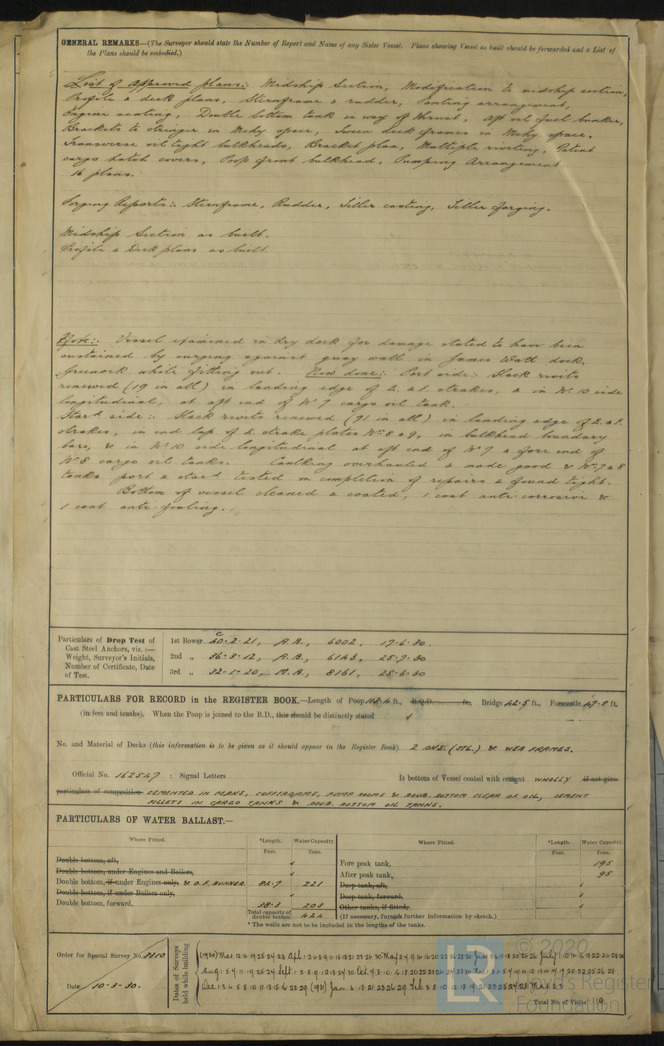 GENERAL REMARKS—(The Surveyor should state the Number of Report and Name of any Sister Vessel. Plans showing Vessel as built should be forwarded and a List of
the Plans should be embodied.)
List of approved plans: Midship Section, Modification to midship section,
Profile & deck plans, Sternframe & rudder, Panting arrangement,
Engine seating, Double bottom tank in way of thrust, Aft oil fuel bunker,
Brackets to stringer in Mchy space, Tween deck frames in Mchy space,
Transverse oiltight bulkheads, Bracket plan, Multiple riveting, Patent
cargo hatch covers, Poop front bulkhead, Pumping Arrangement
16 plans.
Forging Reports:- Sternframe, Rudder, Tiller casting, Tiller forging.
Midship Section as built.
Profile & Deck plans as built.
Note:- Vessel examined in dry dock for damage stated to have been
sustained by surging against quay wall in James Watt dock,
Greenock while fitting out. Now done: Port side: Slack rivets
renewed (19 in all) in landing edge of strakes, & in No 10 side
longitudinal, at aft end of No 7 cargo oil tank.
Starbd side:- Slack rivets renewed (71 in all) in landing edge of
strakes, in end lap of strake plates Nos 8 & 9, in bulkhead boundary
bars, & in No 10 side longitudinal at aft end of No 7 & fore end of
No 8 cargo oil tanks. Caulking overhauled & made good & Nos 7 & 8
tanks port & starbd tested on completion of repairs & found tight.
Bottom of vessel cleaned & coated, 1 coat anti corrosive &
1 coat anti-fouling.
Particulars of Drop Test of
Cast Steel Anchors, viz.:—
Weight, Surveyor's Initials,
Number of Certificate, Date
of Test.
1st Bower 40-2-21, A.R., 6002, 17-6-30.
2nd „ 36-3-12, A.R., 6143, 25-7-30
3rd „ 32-1-20, M.R., 8161, 25-6-30
PARTICULARS FOR RECORD in the REGISTER BOOK.—Length of Poop ft., R.Q.D. ft., Bridge 42.5 ft., Forecastle 49.8 ft.
(in feet and tenths). When the Poop is joined to the B.D., this should be distinctly stated
No. and Material of Decks (this information is to be given as it should appear in the Register Book) 2 DKS. (STL.) & WEB FRAMES.
Official No. 162547 : Signal Letters Is bottom of Vessel coated with cement WHOLLY if not give
particulars of composition CEMENTED IN PEAKS, COFFERDAMS, PUMP ROOMS & DOUB. BOTTOM CLEAR OF OIL, CEMENT
FILLETS IN CARGO TANKS & DOUB. BOTTOM OIL TANKS.
PARTICULARS OF WATER BALLAST.—
Where Fitted. *Length. Water Capacity. Where Fitted. *Length. Water Capacity.
Feet. Tons. Feet. Tons.
Double bottom, aft,
Double bottom, under Engines and Boilers,
Double bottom, if under Engines only, & O.F. BUNKER 84.7 221
Double bottom, if under Boilers only,
Double bottom, forward, 38.3 203
Total capacity of double bottom 424
Fore peak tank, 195
After peak tank, 95
Deep tank, aft,
Deep tank, forward,
Other tanks, if fitted,
(If necessary, furnish further information by sketch.)
* The wells are not to be included in the lengths of the tanks.
Order for Special Survey No. 3810
Date 10-3-30.
Dates of Surveys
held while building
Total No. of Visits
© 2020
LR
Lloyd's Register
Foundation